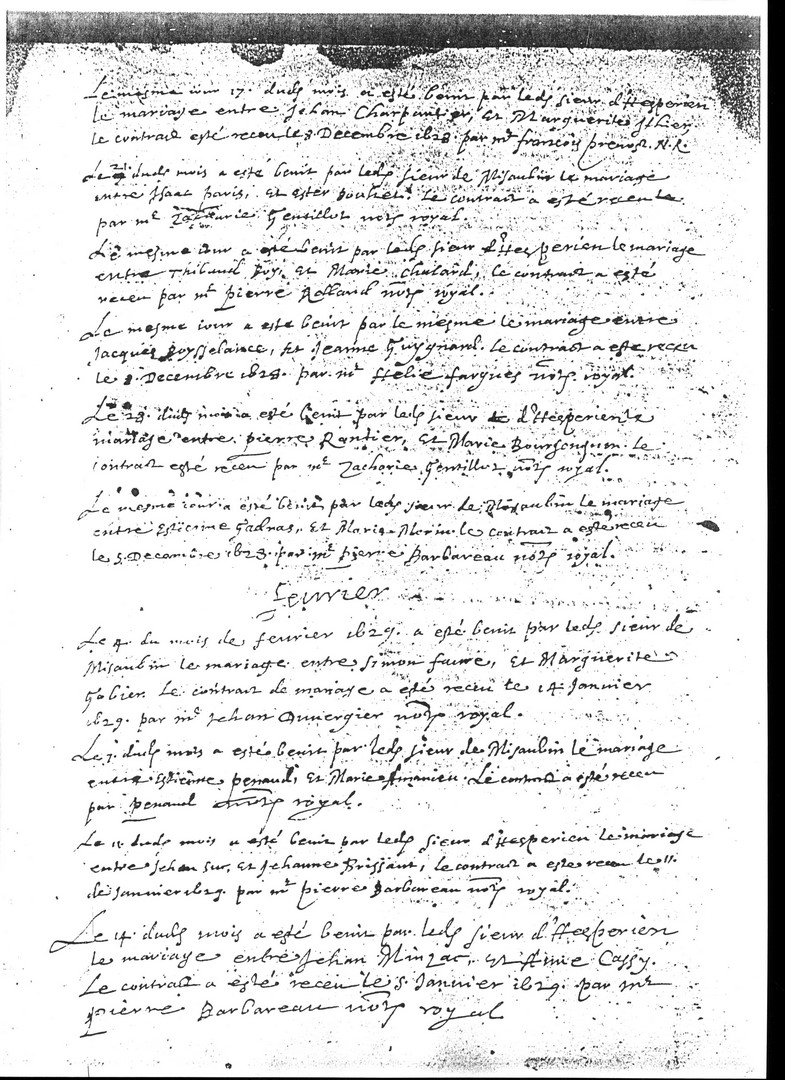 Le mesme iour 17. dudt mois a esté benit par ledt sieur d'Hesperien
le mariage entre Jehan Charpantier, Et Marguerite
le contract esté receu le 8 Decembre 1628. par mr françois preuost. N.R.
Le dudt mois a esté benit par ledt sieur de Misaubin le mariage
entre Isaac paris, et Ester le contract a esté receu le
par mr Zacharie Gentillot notre royal.
Le mesme iour a esté benit par ledt sieur d'Hesperien le mariage
entre Thibaud Roy, Et Marie Chalard, le contract a esté
receu par mr pierre Rolland notre royal.
Le mesme iour a esté benit par le mesme le mariage entre
Jacques Et Jeanne Guygnard. le contract a esté receu
le 8. Decembre 1628. par mr Helie fargues notre royal.
Le 28. dudt mois a esté benit par ledt sieur d'Hesperien le
mariage entre pierre Rantier, Et Marie le
contract esté receu par mr Zacharie Gentillot notre royal.
Le mesme iour a esté benit par ledt sieur de Misaubin le mariage
entre Estienne Et Marie Morin. le contract a esté receu
le 5. Decembre 1628. par mr pierre Barbareau notre royal.
Feurier
Le 4. du mois de feurier 1629. a esté benit par ledt sieur de
Misaubin le mariage entre Simon faure, Et Marguerite
Gobier. Le contrait de mariage a esté receu le 14 Januier
1629. par mr Jehan notre royal.
Le 7. dudt mois a esté benit par ledt sieur de Misaubin le mariage
entre Estienne penaud, Et Marie Amanieu. Le contract a esté receu
par penaud notre royal.
Le 11 dudt mois a esté benit par ledt sieur d'Hesperien le mariage
entre Jehan Sur, Et Jehanne Brissaut, le contract a esté receu le 11.
de Januier 1629. par mr pierre Barbareau notre royal.
Le 14. dudt mois a esté benit par ledt sieur d'Hesperien
le mariage entre Jehan Minzac, Et Anne Cassy.
Le contract a esté receu le 5 Januier 1629. par mr
pierre Barbareau notre royal